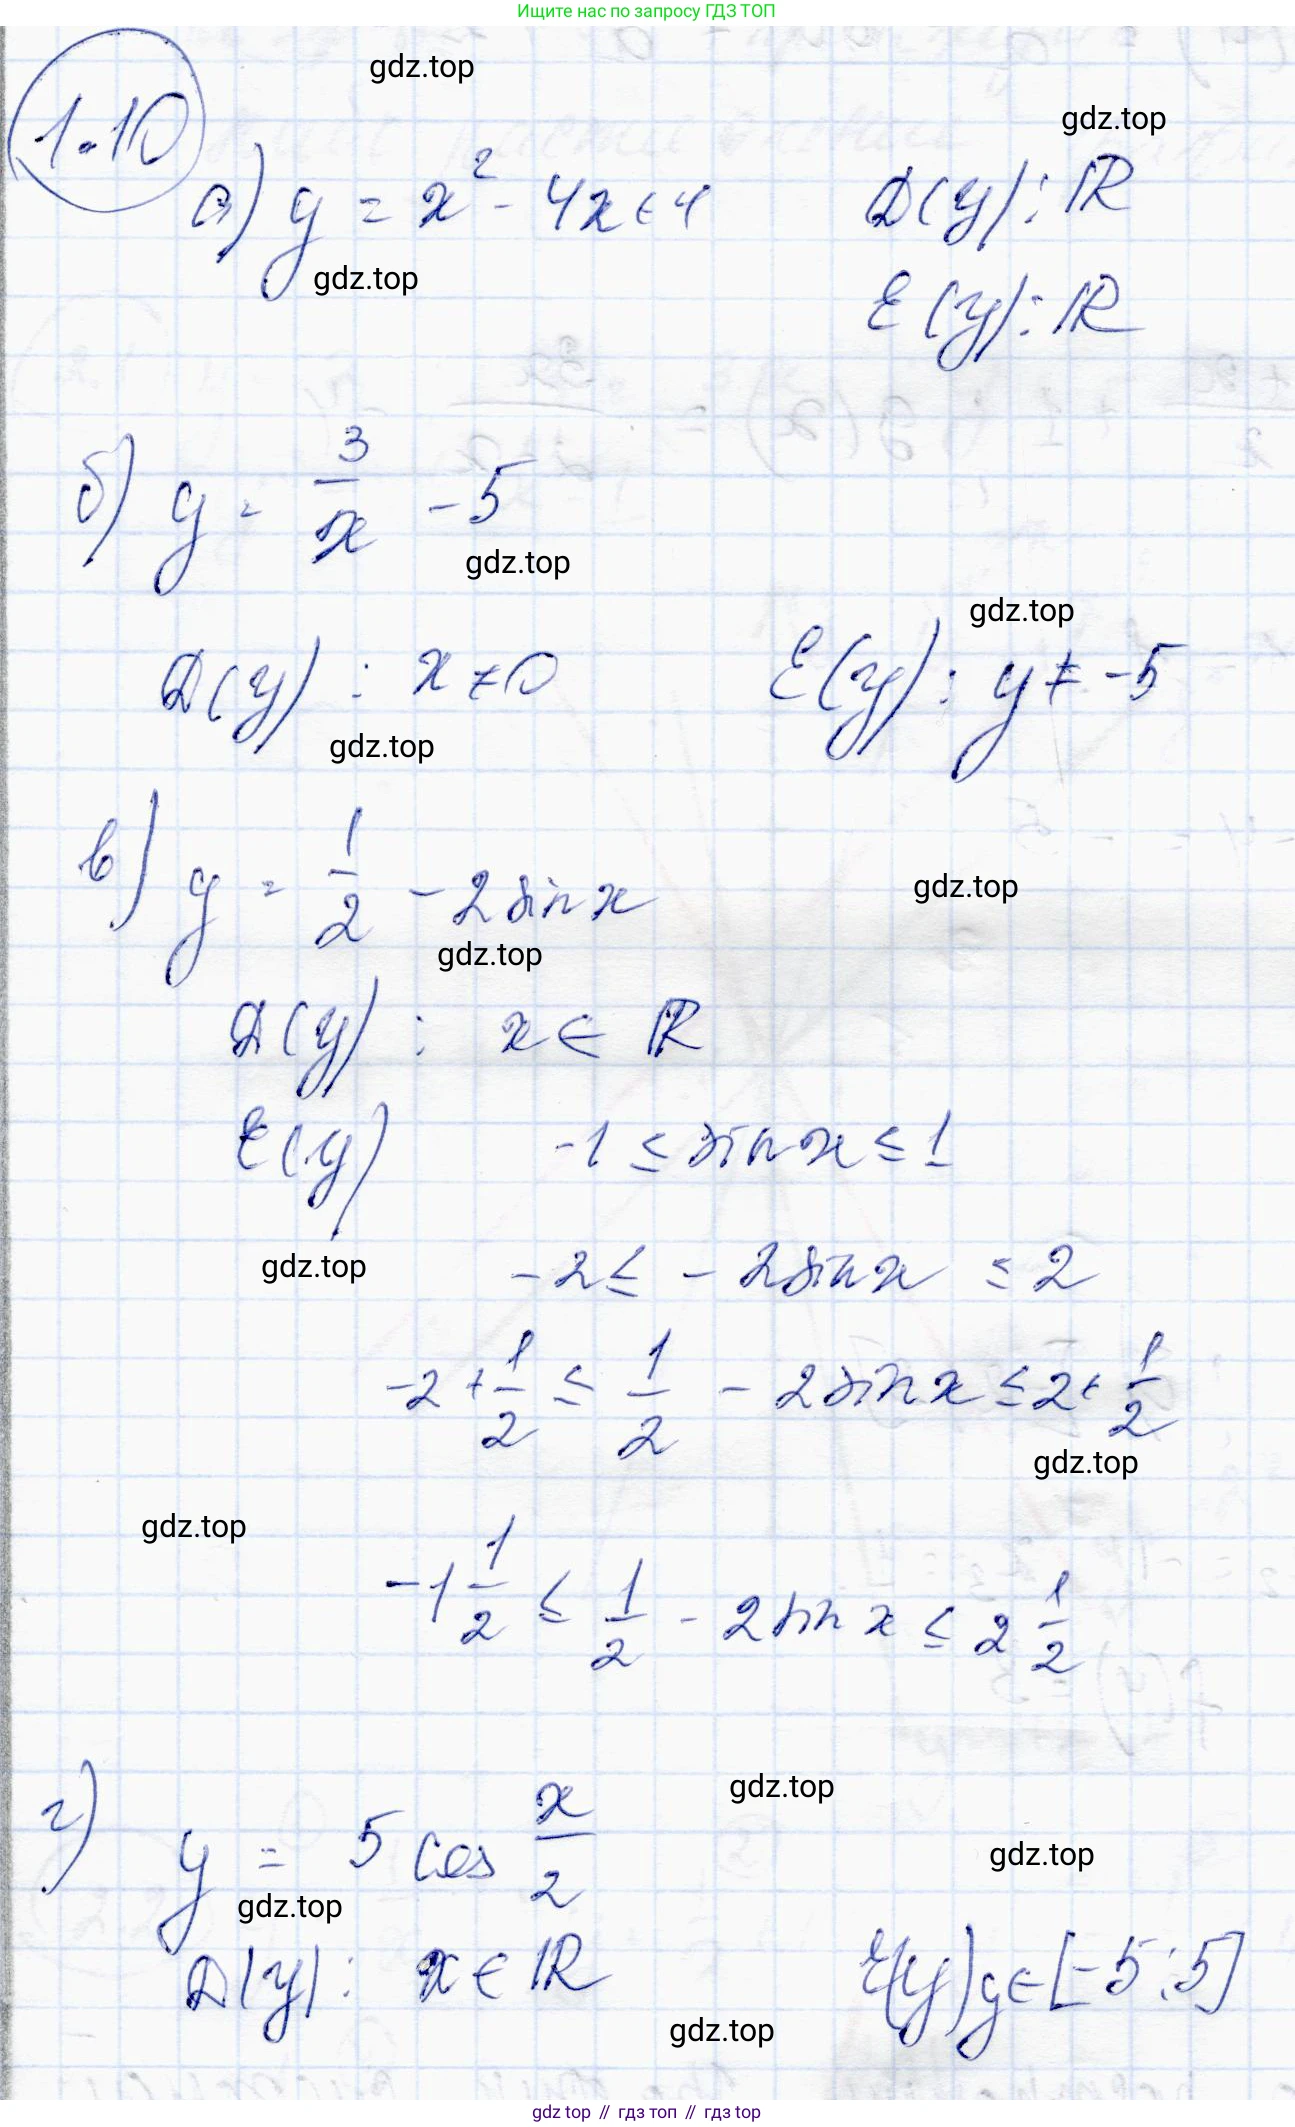 Ищите нас по запросу ГДЗ ТОП
gdz.top
1.10
gdz.top
а) y = x² - 4x + 4 D(y): ℝ
gdz.top
E(y): ℝ
б) y = 3/x - 5
gdz.top
gdz.top
D(y): x ≠ 0 E(y): y ≠ -5
gdz.top
в) y = 1/2 - 2 sin x
gdz.top
gdz.top
D(y): x ∈ ℝ
E(y) -1 ≤ sin x ≤ 1
gdz.top
-2 ≤ - 2 sin x ≤ 2
-2 + 1/2 ≤ 1/2 - 2 sin x ≤ 2 + 1/2
gdz.top
gdz.top
-1 1/2 ≤ 1/2 - 2 sin x ≤ 2 1/2
gdz.top
г) y = 5 cos x/2
gdz.top
gdz.top
D(y): x ∈ ℝ E(y) y ∈ [-5; 5]
gdz.top
gdz top // гдз топ // гдз top